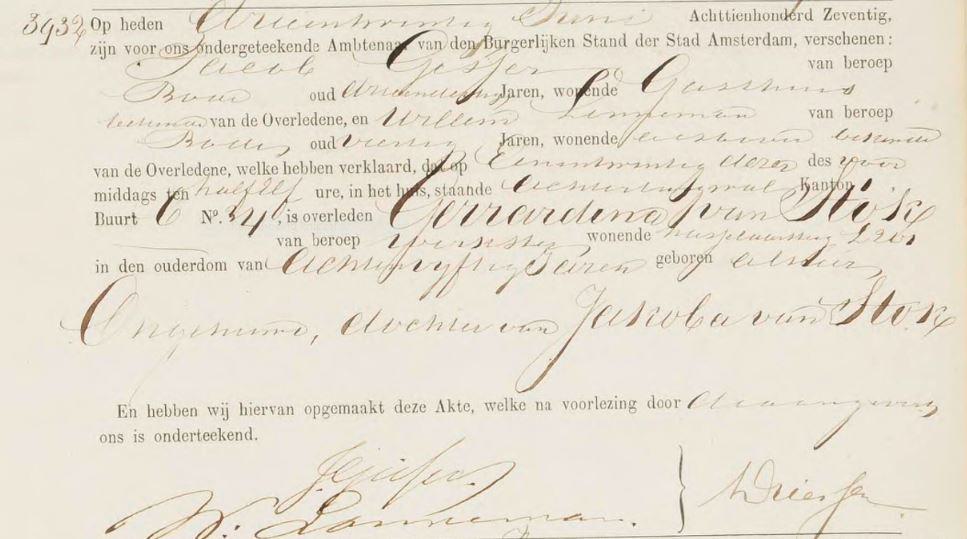 3932 Op heden Drieentwintig Juni Achttienhonderd Zeventig,
zijn voor ons ondergeteekende Ambtenaar van den Burgerlijken Stand der Stad Amsterdam, verschenen:
Jacob van beroep
Bode oud Jaren, wonende Gasthuis
bekende van de Overledene, en Willem Lanneman van beroep
Bode, oud veertig Jaren, wonende als boven bekende
van de Overledene, welke hebben verklaard, dat op Eenentwintig dezer des voor
middags ten half elf ure, in het huis, staande Achterburgwal Kanton
Buurt C No. 34, is overleden Gerrardina van Stok
van beroep werkster, wonende
in den ouderdom van Achtenvyftig Jaren geboren alhier,
Ongehuwd, dochter van Jakoba van Stok
En hebben wij hiervan opgemaakt deze Akte, welke na voorlezing door de aangevers,
ons is onderteekend.
W: Lanneman.